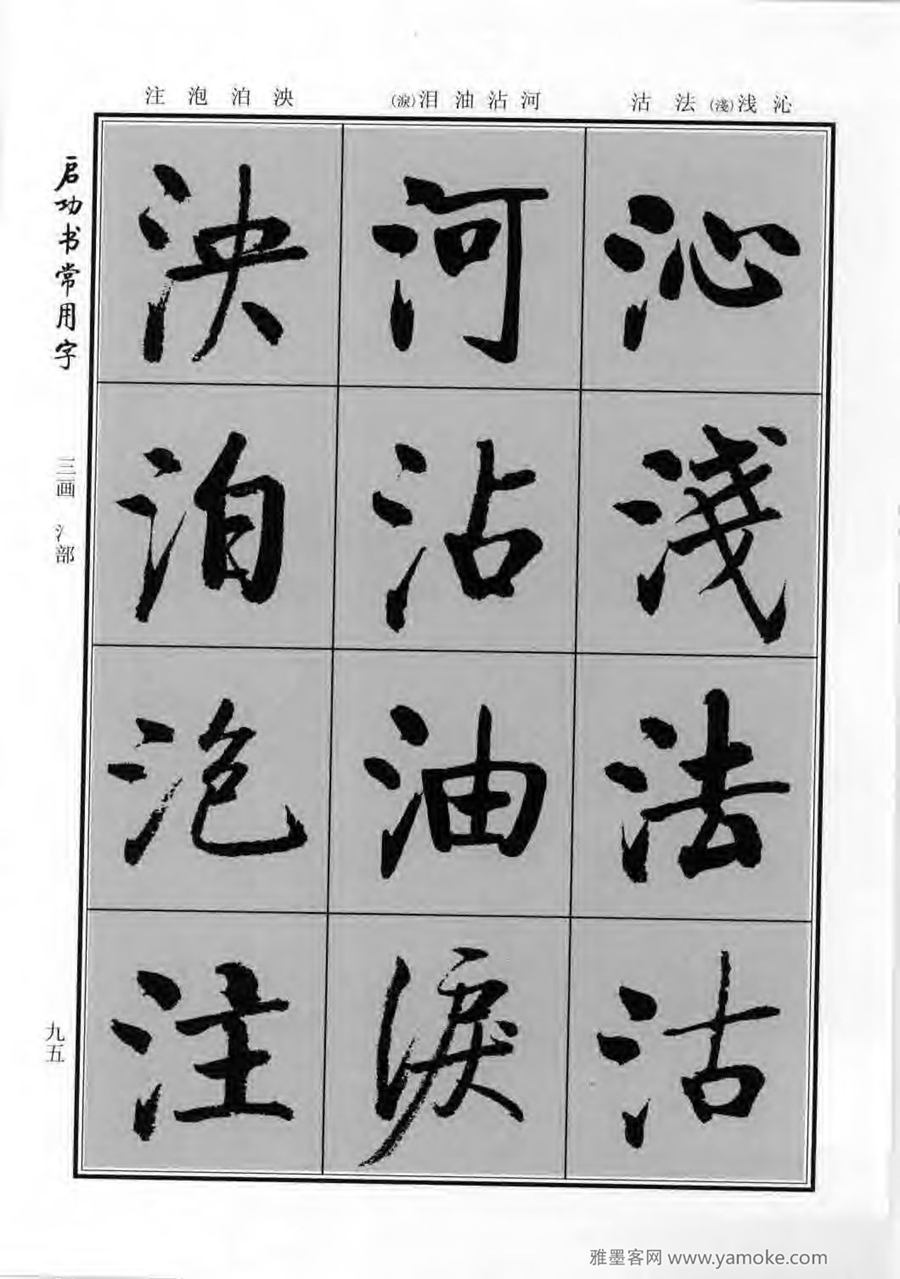 沁浅(淺)法沽
河沾油泪(淚)
泱泊泡注
沁淺法沽
河沾油淚
泱泊泡注
启功书常用字
三画 氵部
九五
雅墨客网 www.yamoke.com